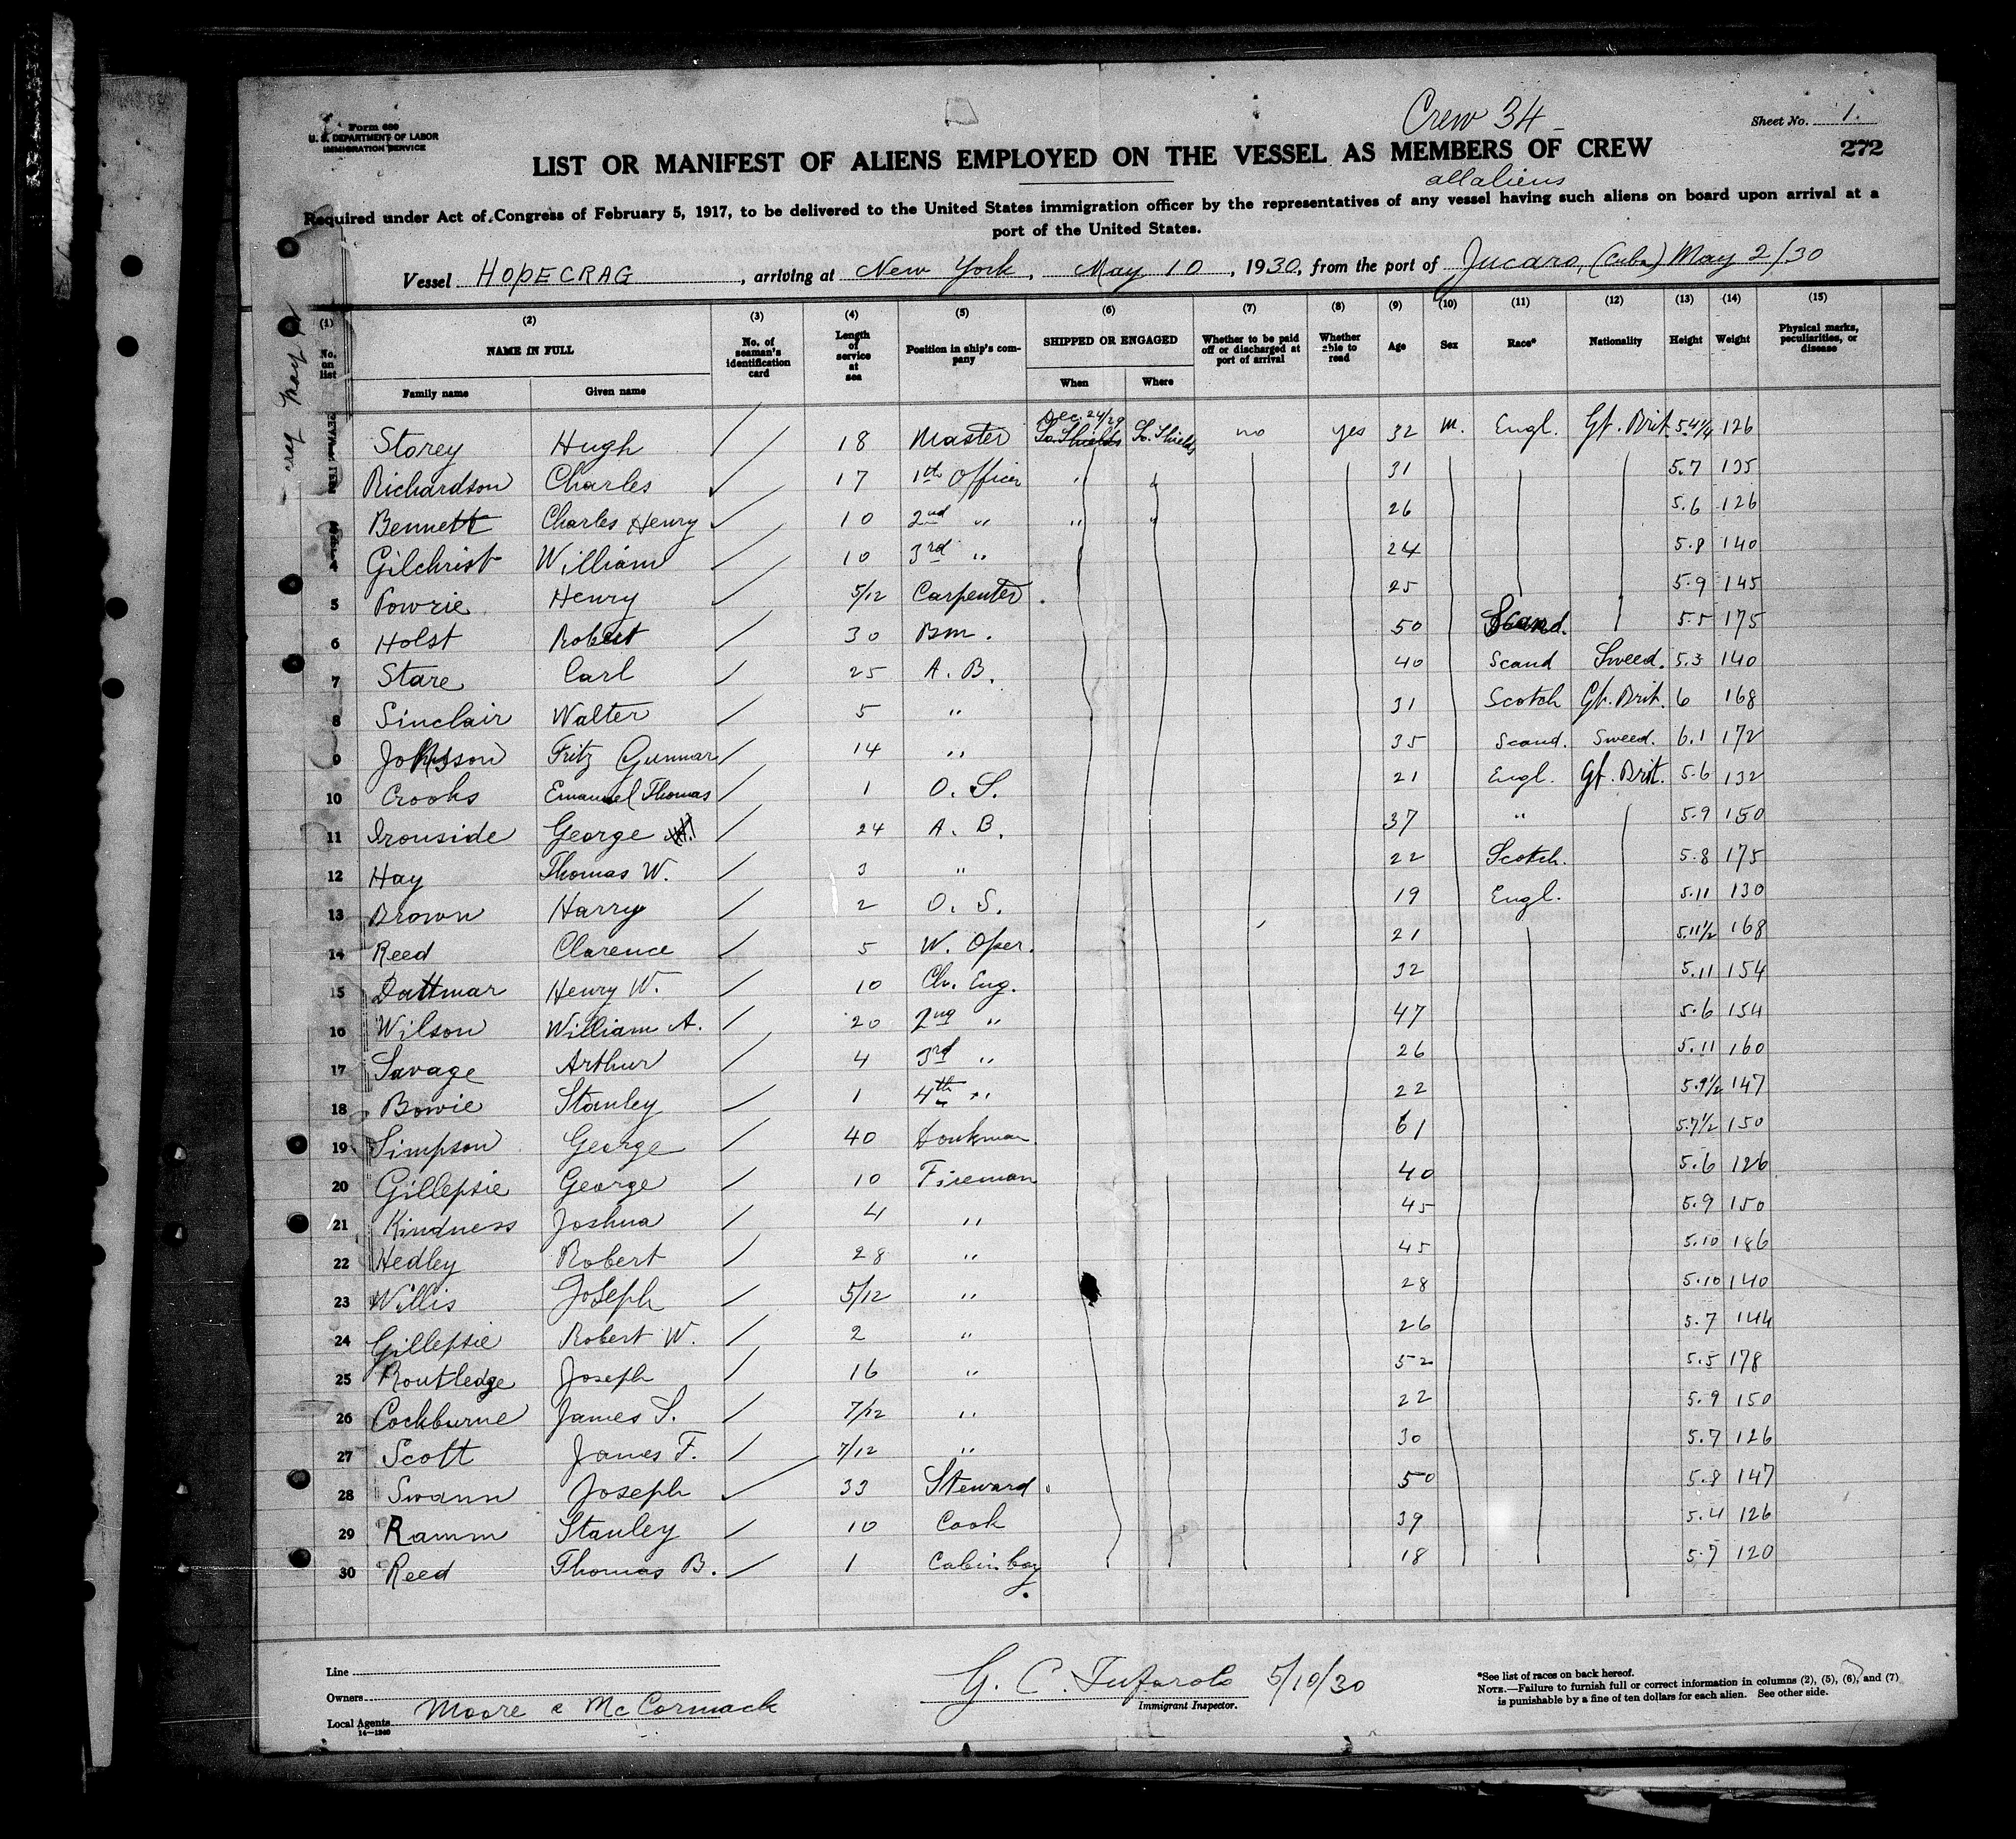 Crew 34
Sheet No. 1.
Form 680
U. S. DEPARTMENT OF LABOR
IMMIGRATION SERVICE
LIST OR MANIFEST OF ALIENS EMPLOYED ON THE VESSEL AS MEMBERS OF CREW
272
all aliens
Required under Act of Congress of February 5, 1917, to be delivered to the United States immigration officer by the representatives of any vessel having such aliens on board upon arrival at a
port of the United States.
Vessel HOPECRAG, arriving at New York, May 10, 1930, from the port of Jucaro, (Cuba) May 2/30
(1) (2) (3) (4) (5) (6) (7) (8) (9) (10) (11) (12) (13) (14) (15)
No. on list NAME IN FULL No. of seaman's identification card Length of service at sea Position in ship's company SHIPPED OR ENGAGED Whether to be paid off or discharged at port of arrival Whether able to read Age Sex Race* Nationality Height Weight Physical marks, peculiarities, or disease
Family name Given name When Where
Dec. 24/29
Storey Hugh 18 Master So. Shields So. Shields no yes 32 m. Engl. Gt. Brit. 5.4 1/4 126
Richardson Charles 17 1th Officer " " 31 5.7 135
Bennett Charles Henry 10 2nd " " " 26 5.6 126
4 Gilchrist William 10 3rd " 24 5.8 140
5 Powrie Henry 5/12 Carpenter. 25 5.9 145
6 Holst Robert 30 Bm. 50 Scand. 5.5 175
7 Stare Carl 25 A. B. 40 Scand Sweed. 5.3 140
8 Sinclair Walter 5 " 31 Scotch Gt. Brit. 6 168
9 Johnsson Fritz Gunnar 14 " 35 Scand. Sweed. 6.1 172
10 Crooks Emanuel Thomas 1 O. S. 21 Engl. Gt. Brit. 5.6 132
11 Ironside George 24 A. B. 37 " 5.9 150
12 Hay Thomas W. 3 " 22 Scotch. 5.8 175
13 Brown Harry 2 O. S. 19 Engl. 5.11 130
14 Reed Clarence 5 W. Oper. 21 5.11 1/2 168
15 Dattmar Henry W. 10 Ch. Eng. 32 5.11 154
16 Wilson William A. 20 2nd " 47 5.6 154
17 Savage Arthur 4 3rd " 26 5.11 160
18 Bowie Stanley 1 4th " 22 5.9 1/2 147
19 Simpson George 40 Donkman 61 5.7 1/2 150
20 Gillepsie George 10 Fireman 40 5.6 126
21 Kindness Joshua 4 " 45 5.9 150
22 Hedley Robert 28 " 45 5.10 186
23 Willis Joseph 5/12 " 28 5.10 140
24 Gillepsie Robert W. 2 " 26 5.7 144
25 Routledge Joseph 16 " 52 5.5 178
26 Cockburne James S. 7/12 " 22 5.9 150
27 Scott James F. 7/12 " 30 5.7 126
28 Swann Joseph 33 Steward 50 5.8 147
29 Ramm Stanley 10 Cook 39 5.4 126
30 Reed Thomas B. 1 Cabin boy 18 5.7 120
Line
Owners
Local Agents Moore & McCormack
14—1240
G. C. Tufarolo 5/10/30
Immigrant Inspector.
*See list of races on back hereof.
NOTE.—Failure to furnish full or correct information in columns (2), (5), (6), and (7)
is punishable by a fine of ten dollars for each alien. See other side.